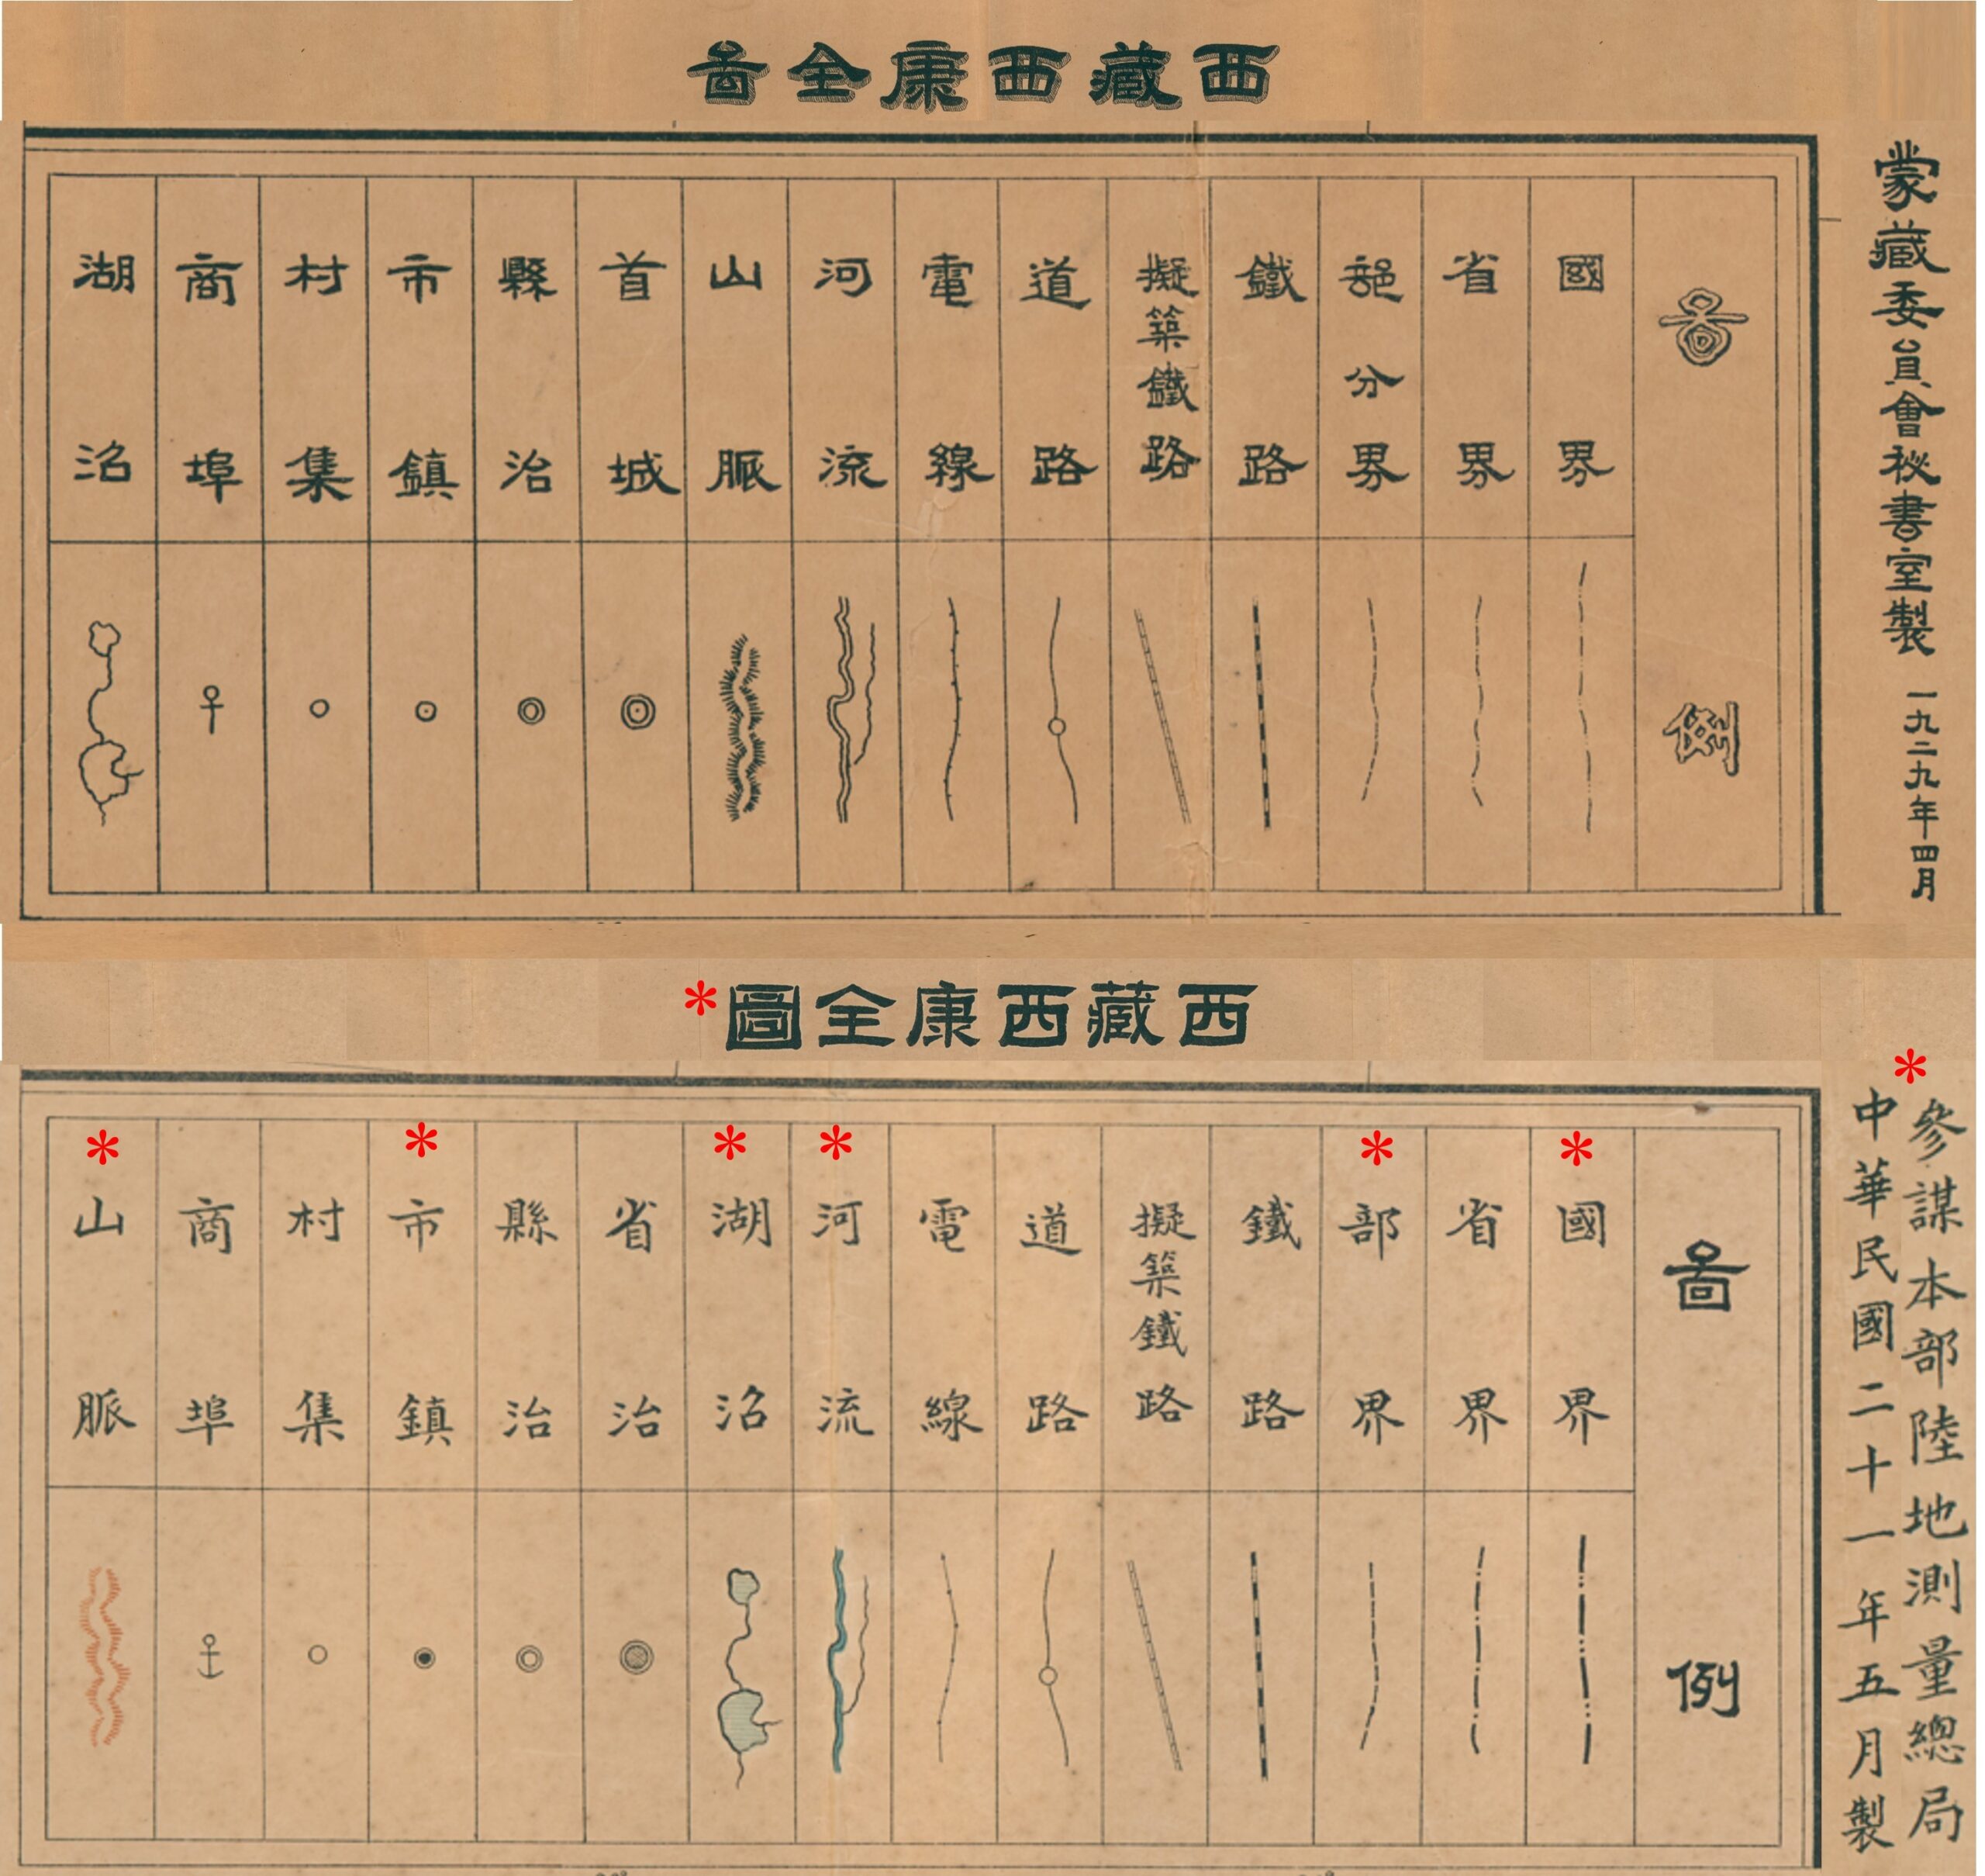 西藏西康全啚
蒙藏委員會秘書室製 一九二九年四月
啚例
國界
省界
部分界
鐵路
擬築鐵路
道路
電線
河流
山脈
首城
縣治
市鎮
村集
商埠
湖沼
*西藏西康全圖
*
參謀本部陸地測量總局
中華民國二十一年五月製
啚例
*國界
省界
*部界
鐵路
擬築鐵路
道路
電線
*河流
*湖沼
省治
縣治
*市鎮
村集
商埠
*山脈